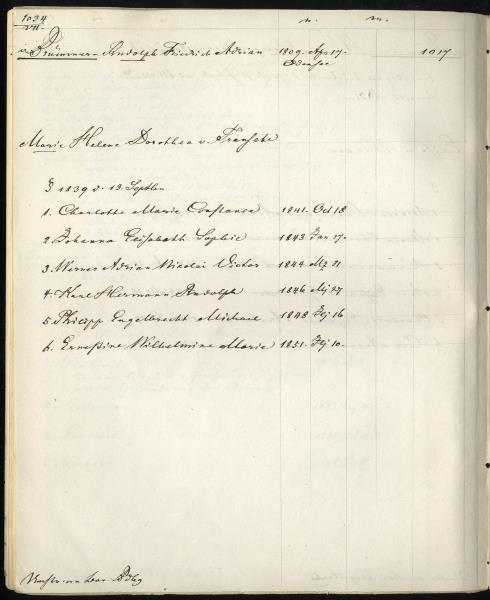 1034 n. m.
VII.
v. Brümmer- Rudolph Friedrich Adrian 1809. Apr 17- 1017
Odensee
Marie Helene Dorothea v. Transehe
§ 1839 d. 13. Septbr
1. Charlotte Marie Constance 1841. Oct 18
2. Johanna Elisabeth Sophie 1843 Jan 17-
3. Werner Adrian Nicolai Victor 1844. Mz 21
4. Karl Hermann Rudolph 1846 Mz 27
5. Philipp Engelbrecht Michael 1848 Fej 16
6. Ernestine Wilhelmine Marie 1851. Fej 10-